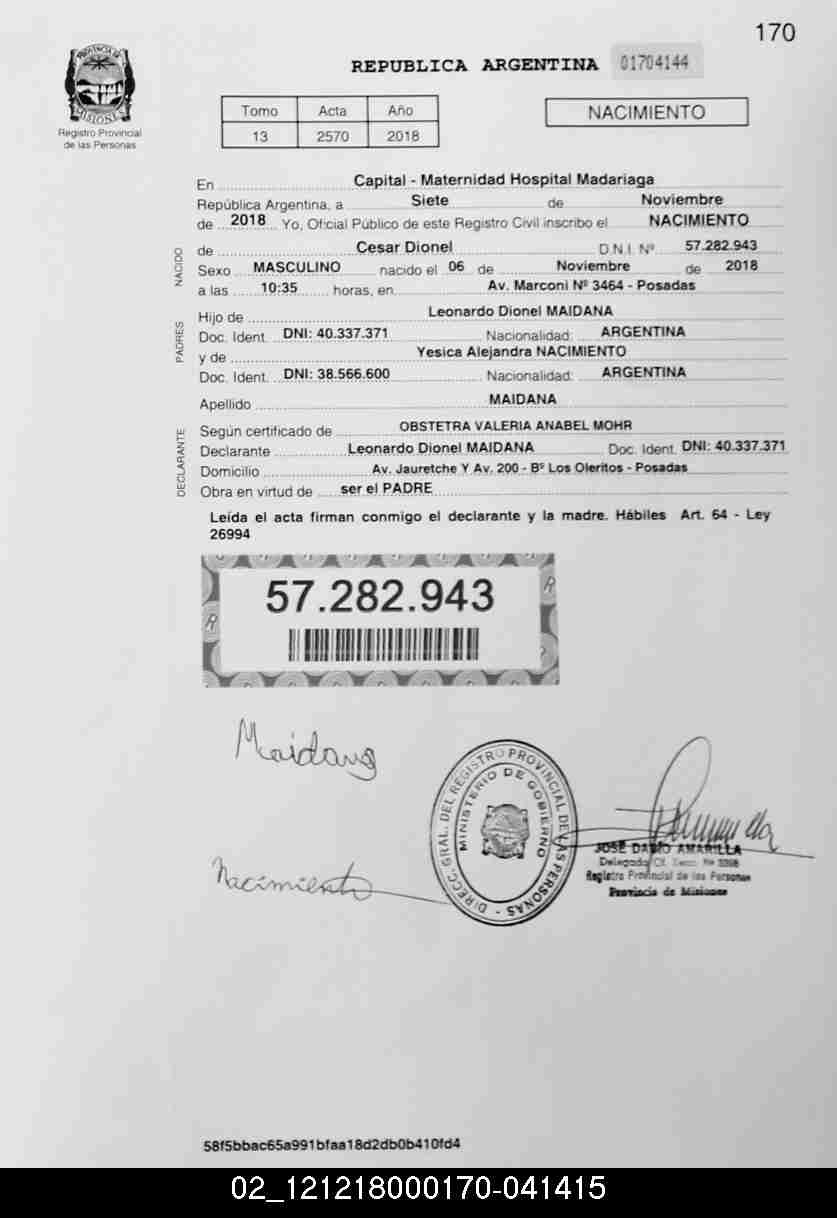 170
PROVINCIA DE
MISIONES
Registro Provincial
de las Personas
REPUBLICA ARGENTINA 01704144
Tomo Acta Año
13 2570 2018
NACIMIENTO
En Capital - Maternidad Hospital Madariaga
República Argentina, a Siete de Noviembre
de 2018 Yo, Oficial Público de este Registro Civil inscribo el NACIMIENTO
NACIDO
de Cesar Dionel D.N.I. Nº 57.282.943
Sexo MASCULINO nacido el 06 de Noviembre de 2018
a las 10:35 horas, en Av. Marconi Nº 3464 - Posadas
PADRES
Hijo de Leonardo Dionel MAIDANA
Doc. Ident. DNI: 40.337.371 Nacionalidad: ARGENTINA
y de Yesica Alejandra NACIMIENTO
Doc. Ident. DNI: 38.566.600 Nacionalidad: ARGENTINA
Apellido MAIDANA
DECLARANTE
Según certificado de OBSTETRA VALERIA ANABEL MOHR
Declarante Leonardo Dionel MAIDANA Doc. Ident. DNI: 40.337.371
Domicilio Av. Jauretche Y Av. 200 - Bº Los Oleritos - Posadas
Obra en virtud de ser el PADRE
Leída el acta firman conmigo el declarante y la madre. Hábiles Art. 64 - Ley
26994
57.282.943
R
R
Maidana
DIRECC. GRAL. DEL REGISTRO PROVINCIAL DE LAS PERSONAS -
MINISTERIO DE GOBIERNO
Nacimiento
JOSE DARIO AMARILLA
Delegado
Registro Provincial de las Personas
Provincia de Misiones
58f5bbac65a991bfaa18d2db0b410fd4
02_121218000170-041415